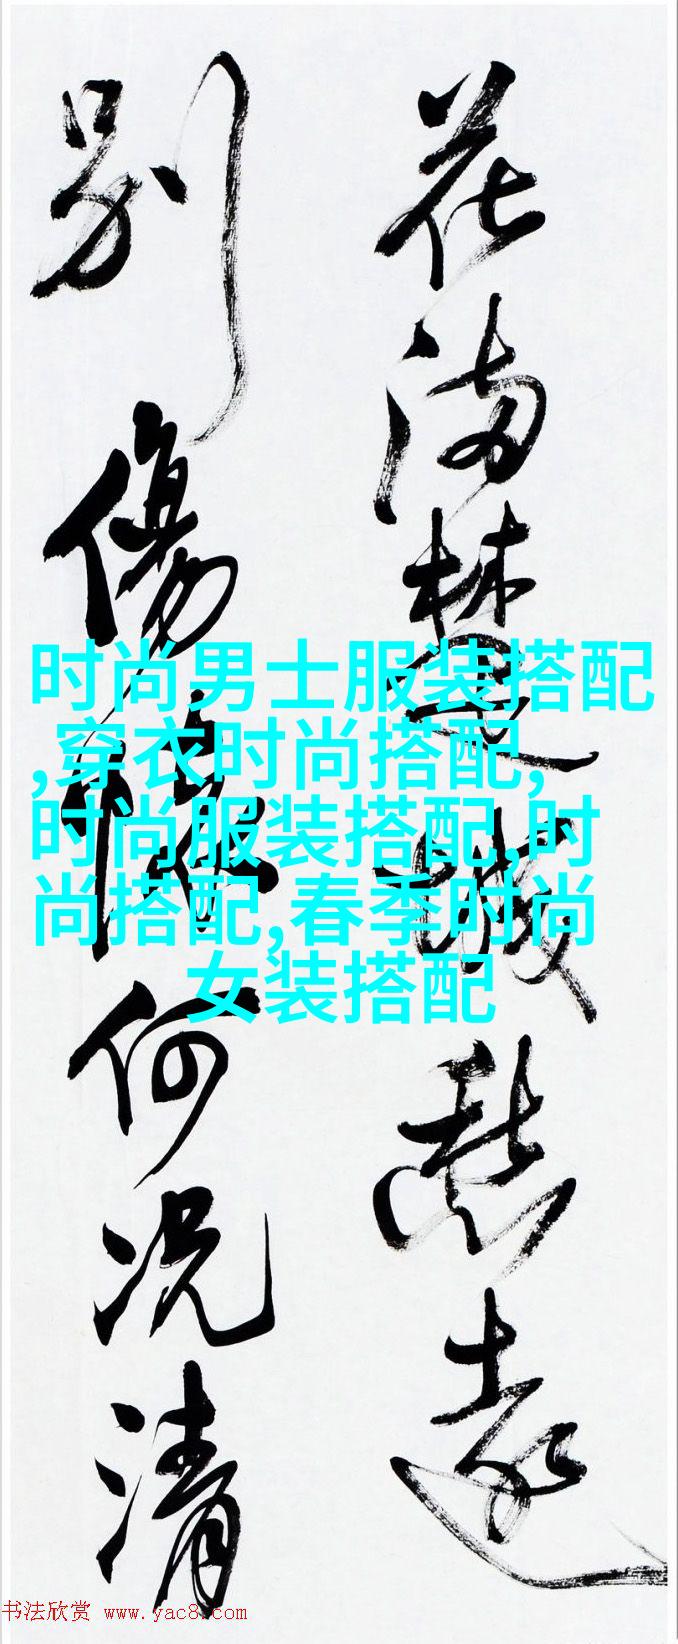 花满楚城愁远
别伤怀何况清
时尚男士服装搭配
,穿衣时尚搭配,
时尚服装搭配,时
尚搭配,春季时尚
女装搭配
书法欣赏 www.yac8.com